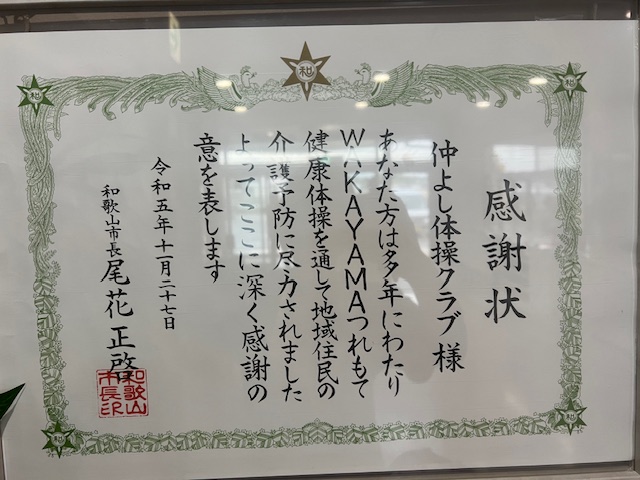 感謝状
仲よし体操クラブ 様
あなた方は多年にわたり
WAKAYAMAつれもて
健康体操を通して地域住民の
介護予防に尽力されました
よってここに深く感謝の
意を表します
令和五年十一月二十七日
和歌山市長 尾花正啓
和歌山
市長印
和
和
和
和
和